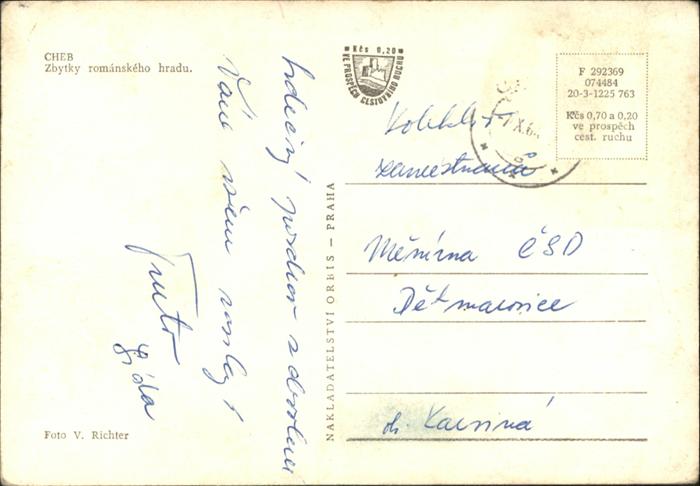 CHEB
Zbytky románského hradu.
Kčs 0,20
VE PROSPĚCH CESTOVNÍHO RUCHU
F 292369
074484
20-3-1225 763
Kčs 0,70 a 0,20
ve prospěch
cest. ruchu
X.6
Srdečný pozdrav z dovolené
Vám všem
Lída
NAKLADATELSTVÍ ORBIS — PRAHA
Kolektiv
zaměstnanců
Měnírna ČSD
Dětmarovice
o. Karviná
Foto V. Richter